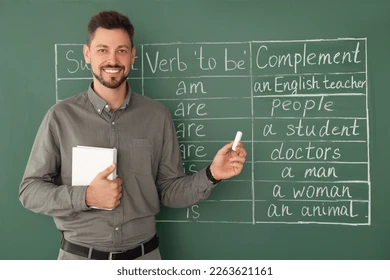 Su Verb 'to be' Complement
am an English teacher
are people
are a student
are doctors
a man
a woman
is an animal
shutterstock.com · 2263621161